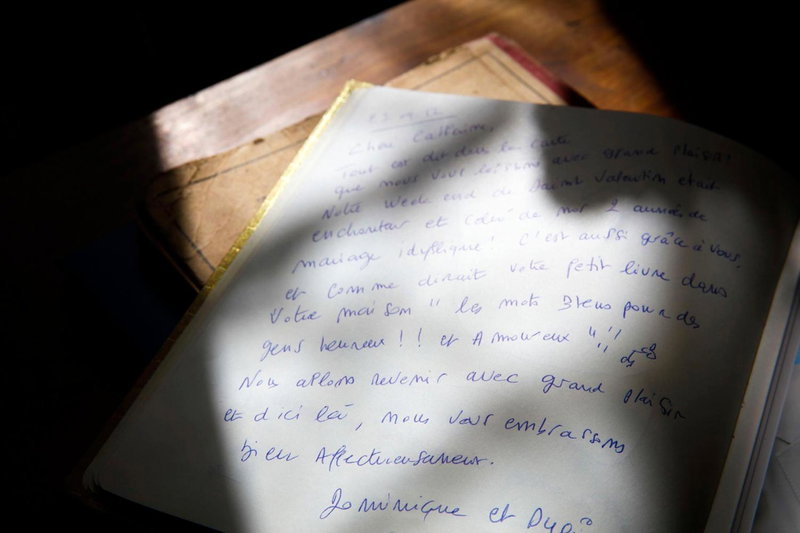 Chère Catherine,
Tout est dit dans la carte
que nous vous laissons avec grand plaisir!
Notre Week end de Saint Valentin était
enchanteur et de nos 2 années de
mariage idyllique! C'est aussi grâce à vous,
et comme dirait votre petit livre dans
Votre maison " les mots Bleus pour des
gens heureux!! et Amoureux "!!
Nous allons revenir avec grand plaisir
et d'ici là, nous vous embrassons
bien Affectueusement.
Dominique et